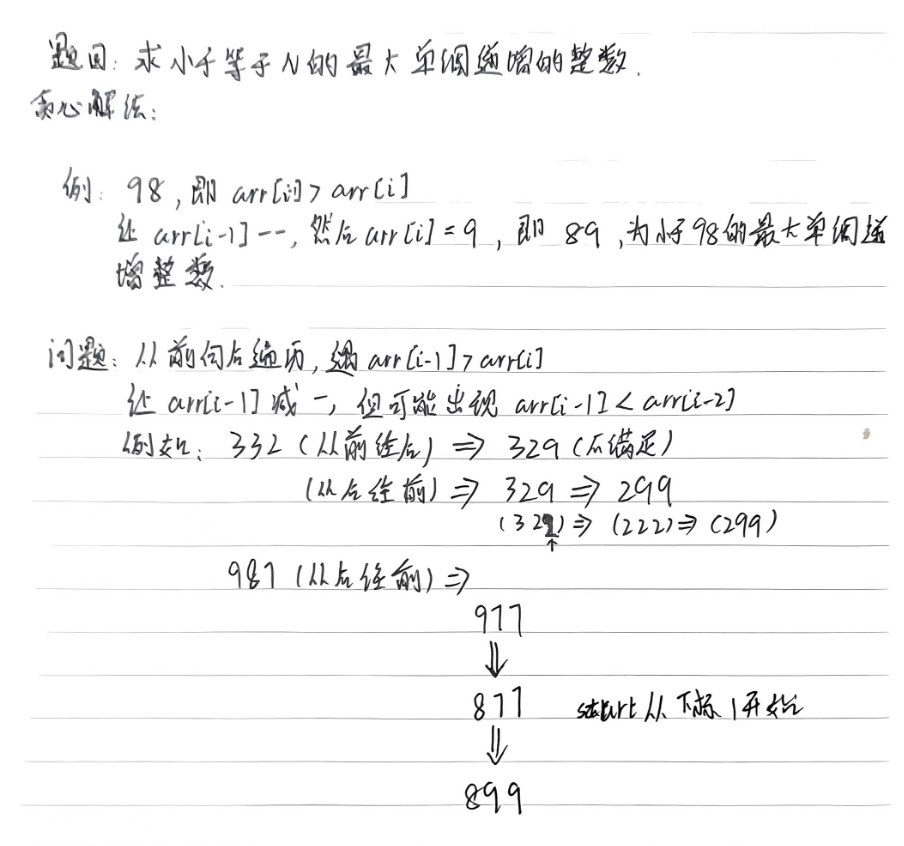 题目: 求小于等于N的最大单调递增的整数.
核心解法:
例: 98, 即 arr[i] > arr[i]
让 arr[i-1]--, 然后 arr[i] = 9, 即 89, 为小于98的最大单调递
增整数.
问题: 从前向后遍历, 遇 arr[i-1] > arr[i]
让 arr[i-1] 减一, 但可能出现 arr[i-1] < arr[i-2]
例如: 332 (从前往后) ⇒ 329 (不满足)
(从后往前) ⇒ 329 ⇒ 299
(329) ⇒ (222) ⇒ (299)
↑
987 (从后往前) ⇒
977
⇓
877 start 从下标1开始
⇓
899